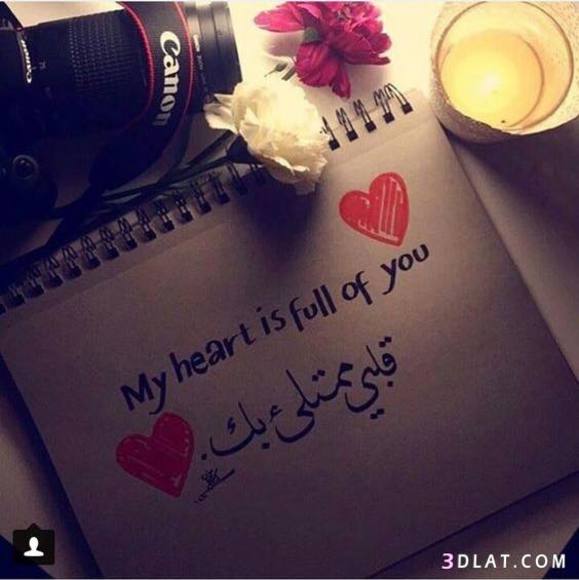 Canon
Canon
My heart is full of you
قلبي ممتلئ بك.
3DLAT.COM